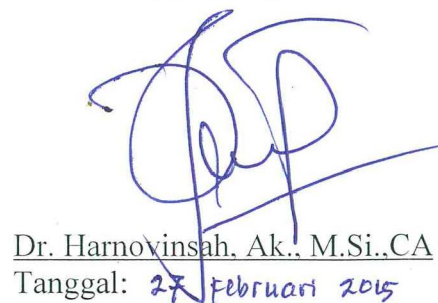 Dr. Harnovinsah, Ak., M.Si.,CA
Tanggal: 27 Februari 2015